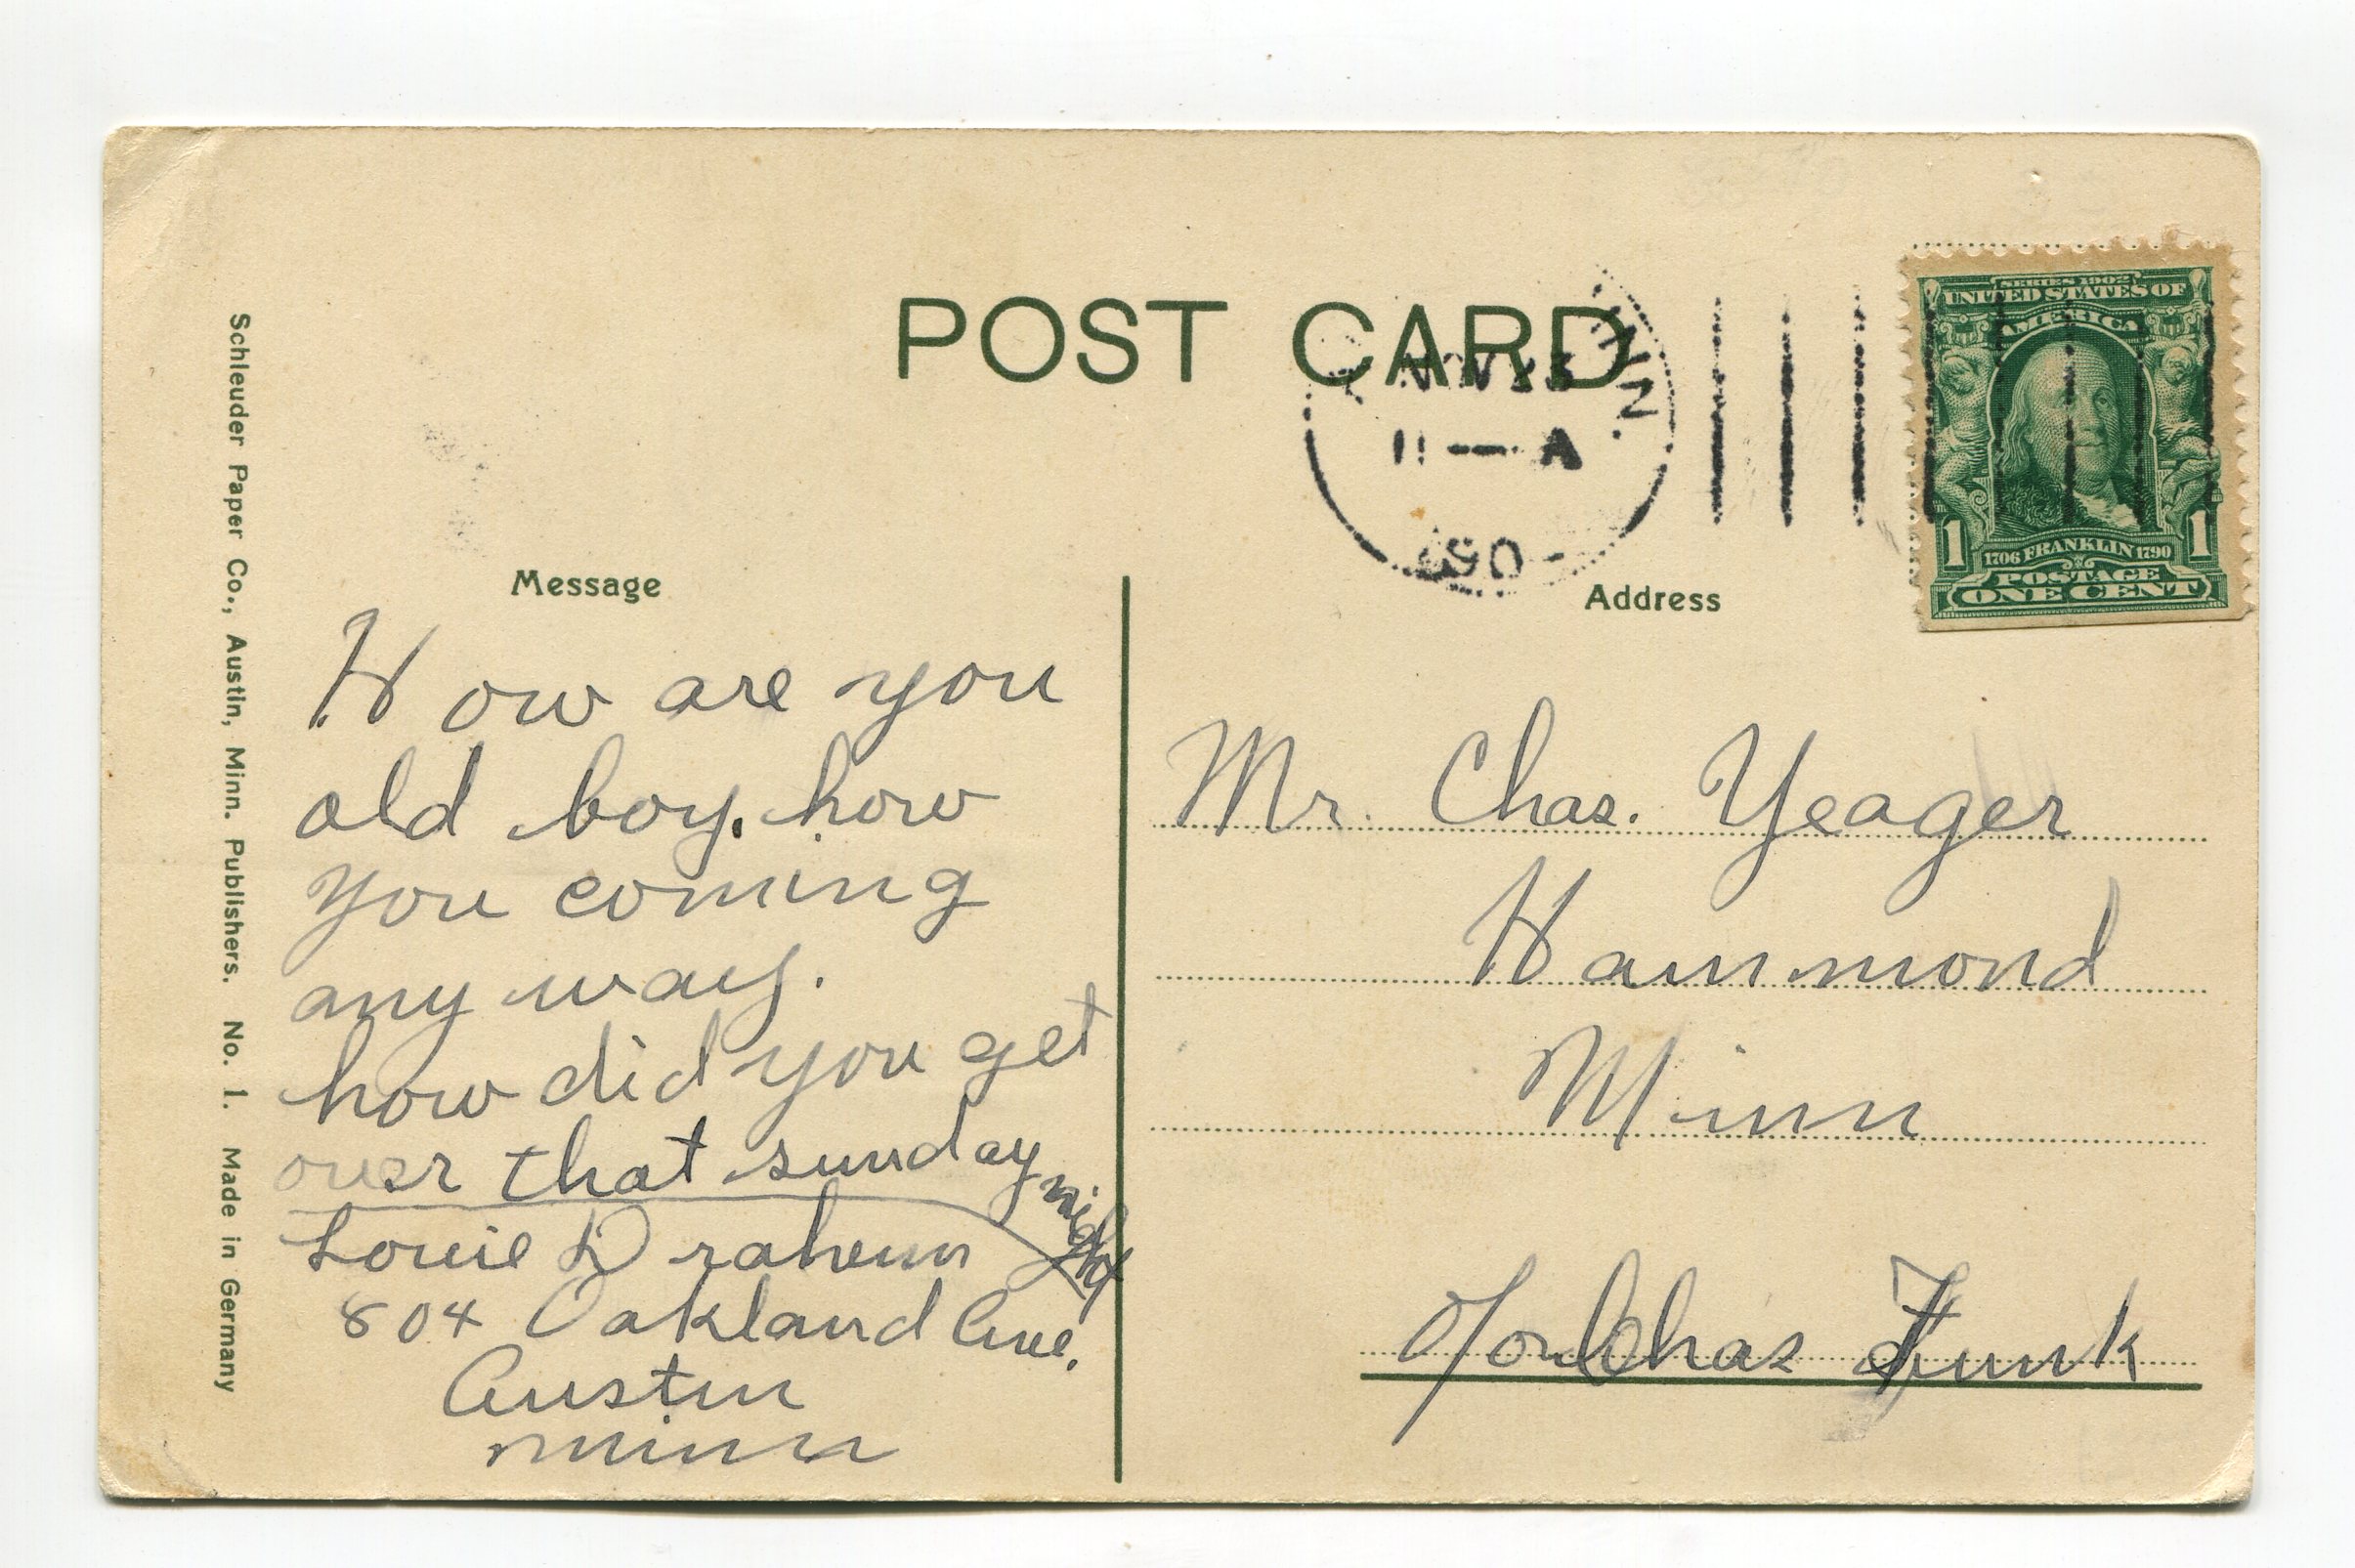 POST CARD
MINN.
NOV 23
11 — A
190
SERIES 1902
UNITED STATES OF
AMERICA
1706 FRANKLIN 1790
1 1
POSTAGE
ONE CENT
Schleuder Paper Co., Austin, Minn. Publishers. No. 1. Made in Germany
Message
How are you
old boy. how
you coming
any way.
how did you get
over that sunday night
Louie Drahem
804 Oakland Ave.
Austin
minn
Address
Mr. Chas. Yeager
Hammond
Minn
Chas Funk